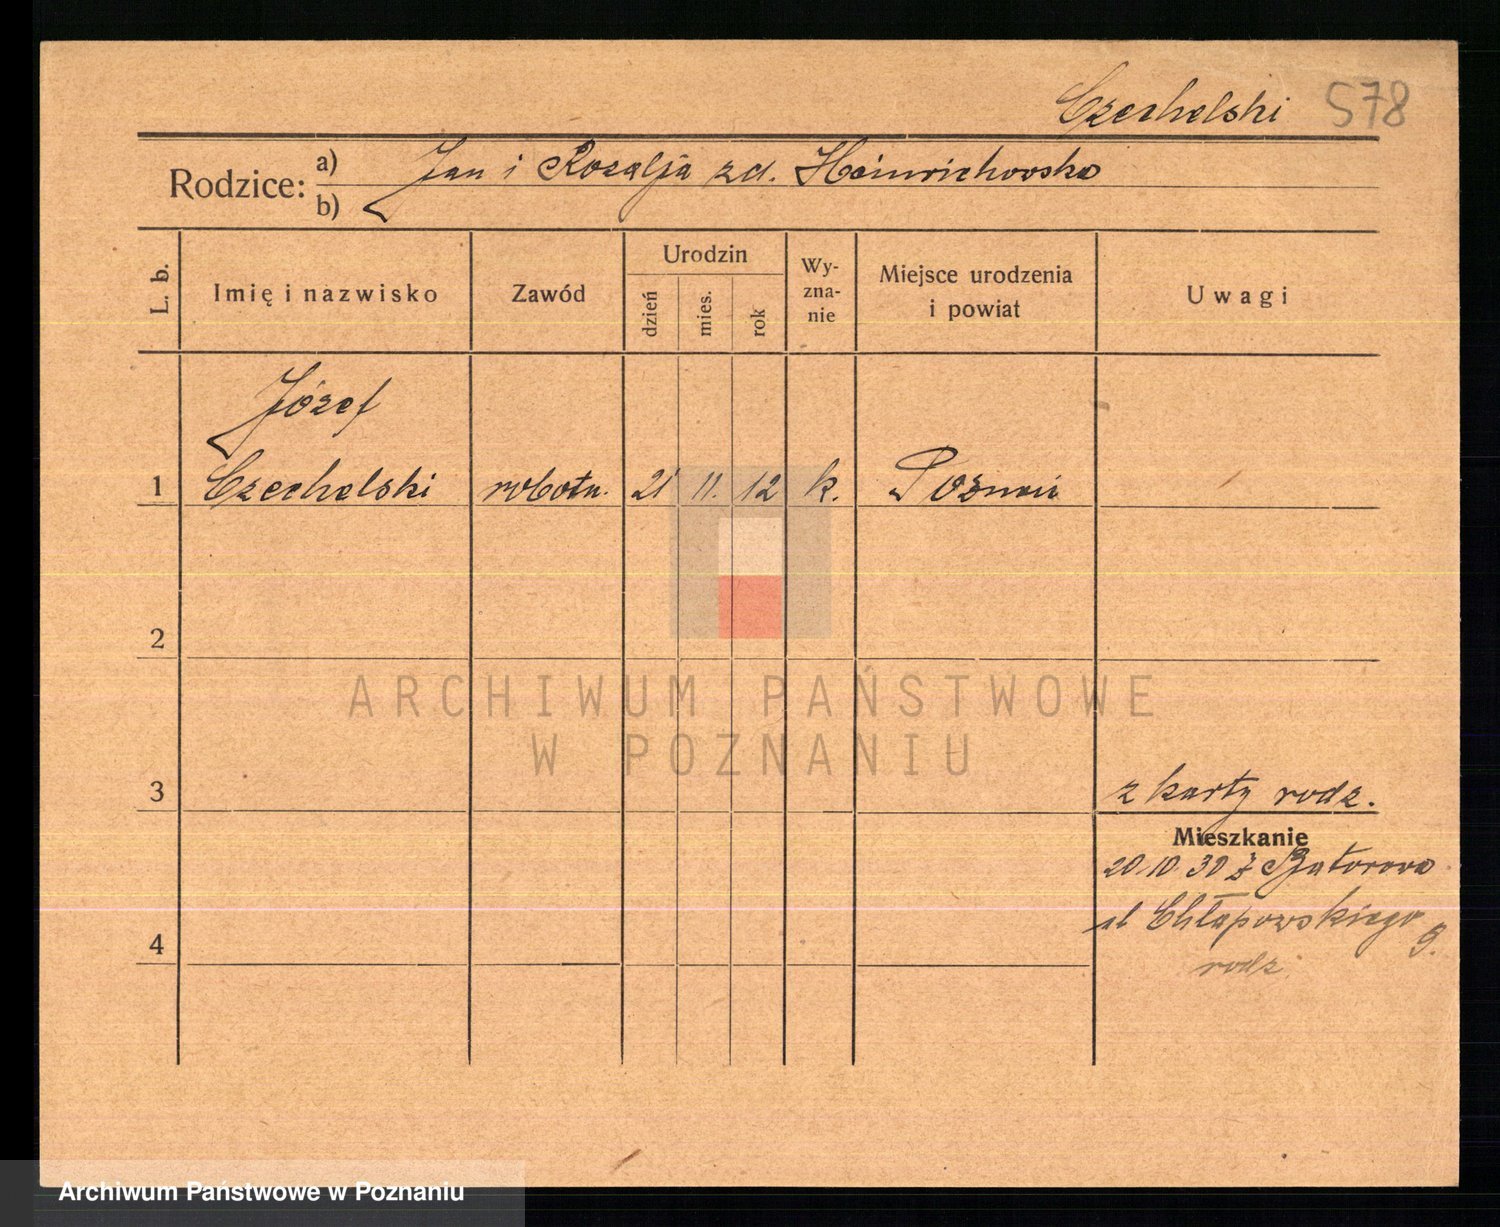 Czechelski 578
Rodzice: a) Jan i Rozalja zd. Heinrichowska
b)
L. b.
Imię i nazwisko
Zawód
Urodzin
dzień
mies.
rok
Wy-
zna-
nie
Miejsce urodzenia
i powiat
Uwagi
Józef
1 Czechelski robotn. 21 11. 12 k. Poznań
2
ARCHIWUM PAŃSTWOWE
W POZNANIU
3 z karty rodz.
Mieszkanie
20.10.30 z Batorowa
ul Chłapowskiego 9.
4 rodz.
Archiwum Państwowe w Poznaniu